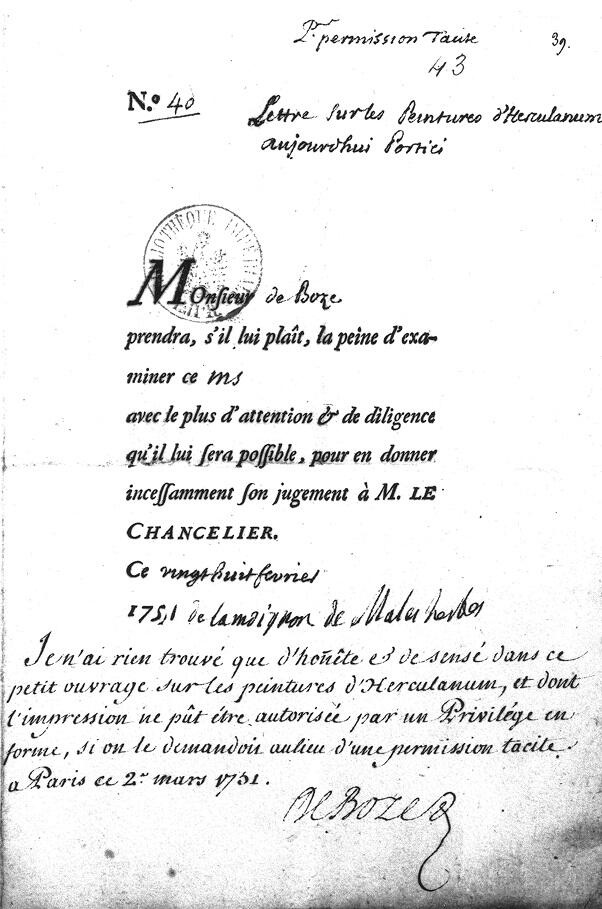 Pr. permission Tacite
39.
43
N.o 40
Lettre sur les Peintures d'Herculanum
aujourdhui Portici
Monsieur de Boze
prendra, s'il lui plaît, la peine d'exa-
miner ce ms
avec le plus d'attention & de diligence
qu'il lui sera possible, pour en donner
incessamment son jugement à M. LE
CHANCELIER.
Ce vingt huit fevrier
1751 de lamoignon de Malesherbes
Je n'ai rien trouvé que d'hoñête et de sensé dans ce
petit ouvrage sur les peintures d'Herculanum, et dont
l'impression ne pût étre autorisée par un Privilége en
forme, si on le demandoit aulieu d'une permission tacite.
a Paris ce 2. mars 1751.
De Boze